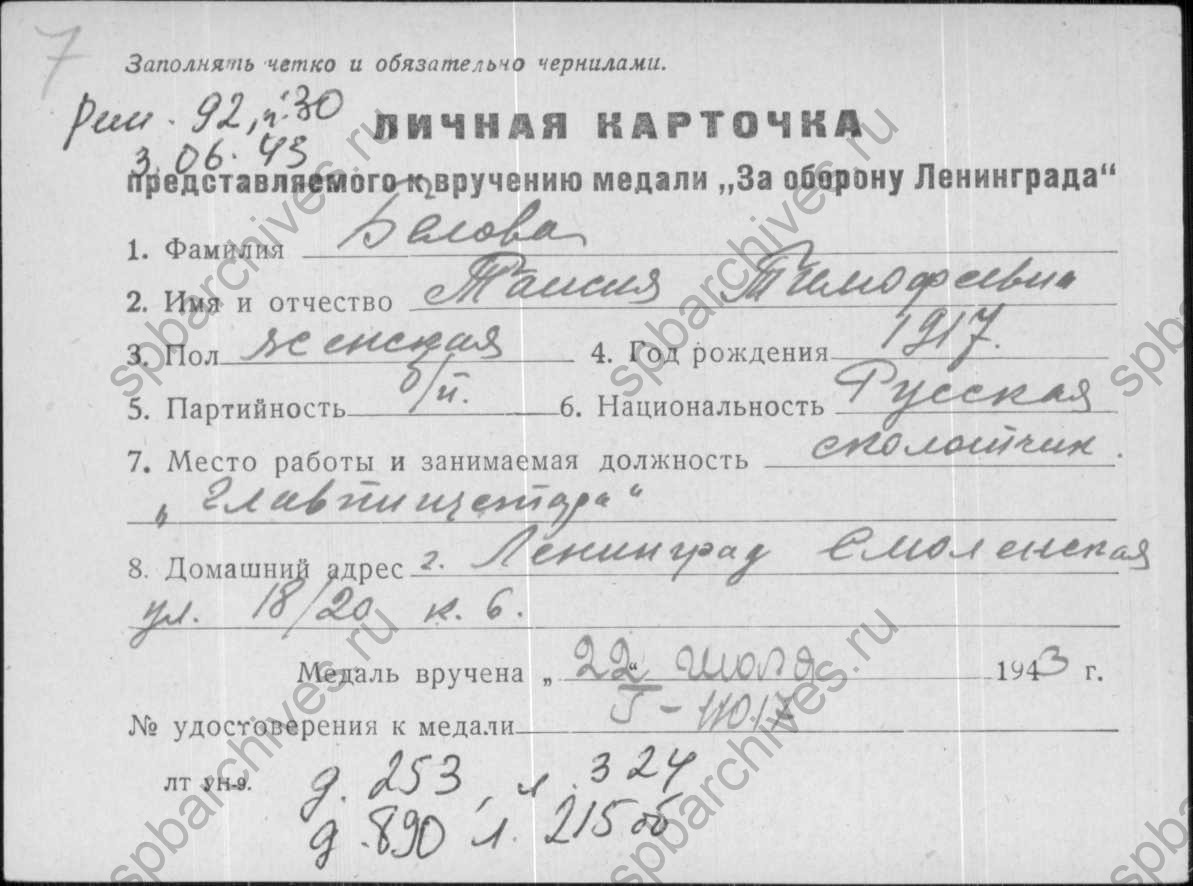 7
Заполнять четко и обязательно чернилами.
Реш. 92, п. 30
3.06.43
ЛИЧНАЯ КАРТОЧКА
представляемого к вручению медали „За оборону Ленинграда“
1. Фамилия Белова
2. Имя и отчество Таисия Тимофеевна
3. Пол женская 4. Год рождения 1917.
5. Партийность б/п. 6. Национальность Русская
7. Место работы и занимаемая должность сколотчик.
„Главпищетара“
8. Домашний адрес г. Ленинград Смоленская
ул. 18/20 к. 6.
Медаль вручена „ 22 “ июля 1943 г.
№ удостоверения к медали
лт ун-э.
д. 253, л. 324
д. 890 л. 215 об
spbarchives.ru
spbarchives.ru
spbarchives.ru
spbarchives.ru
spbarchives.ru